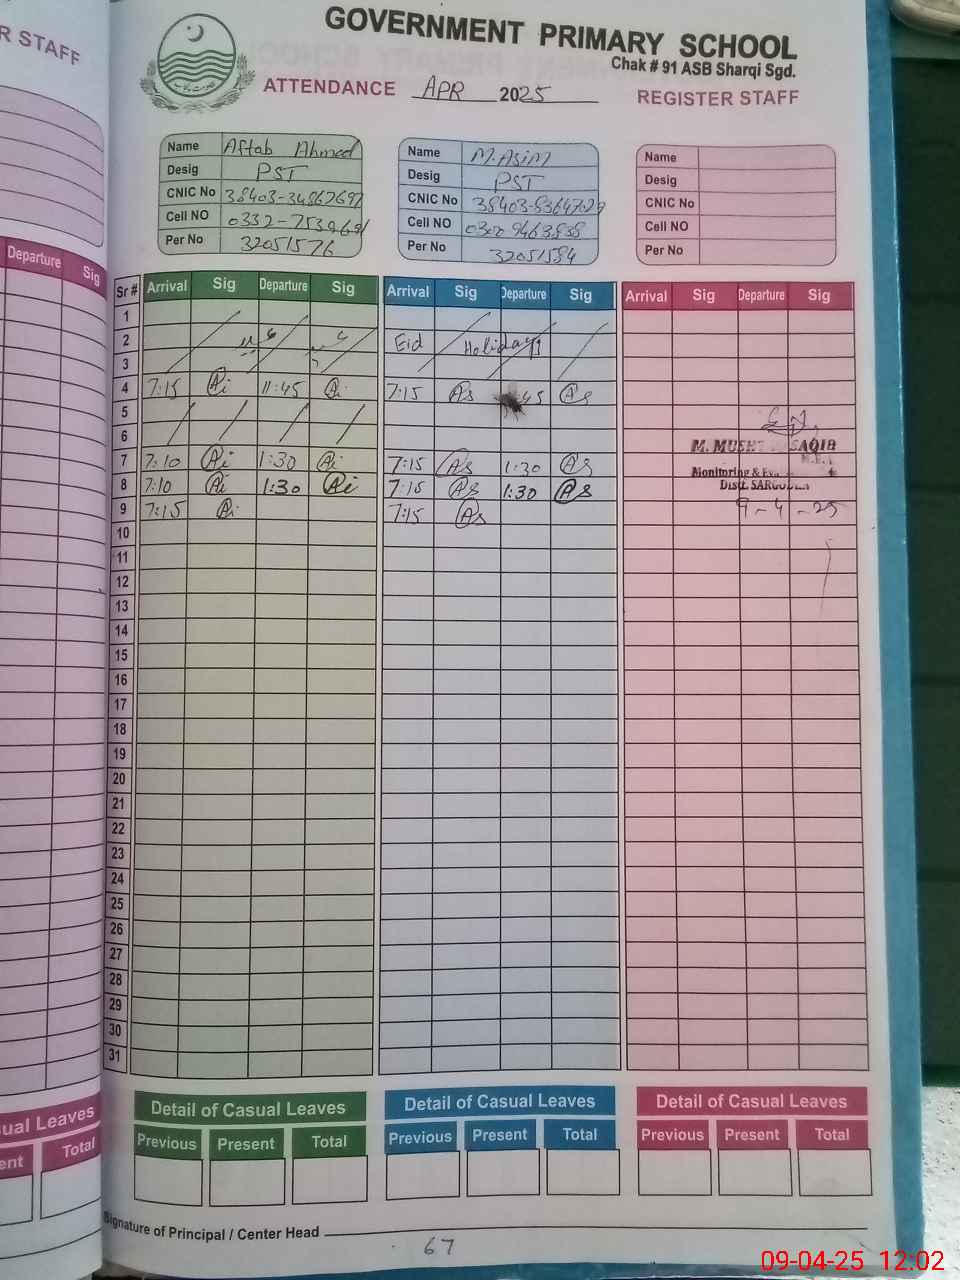 R STAFF
Departure Sig
ual Leaves
ent Total
GOVERNMENT PRIMARY SCHOOL
Chak # 91 ASB Sharqi Sgd.
ATTENDANCE APR 2025 REGISTER STAFF
Name Aftab Ahmed
Desig PST
CNIC No
Cell NO
Per No 32051576
Name M.ASIM
Desig PST
CNIC No
Cell NO
Per No 32051584
Name
Desig
CNIC No
Cell NO
Per No
Sr # Arrival Sig Departure Sig Arrival Sig Departure Sig Arrival Sig Departure Sig
1
2 عید Eid Holidays
3
4 7:15 Ai 11:45 Ai 7:15 As 45 As
5
6
7 7:10 Ai 1:30 Ai 7:15 As 1:30 As
8 7:10 Ai 1:30 Ai 7:15 As 1:30 As
9 7:15 Ai 7:15 As
10
11
12
13
14
15
16
17
18
19
20
21
22
23
24
25
26
27
28
29
30
31
M. SAQIB
Monitoring &
Distt. SARGODHA
9-4-25
Detail of Casual Leaves Detail of Casual Leaves Detail of Casual Leaves
Previous Present Total Previous Present Total Previous Present Total
Signature of Principal / Center Head
67
09-04-25 12:02